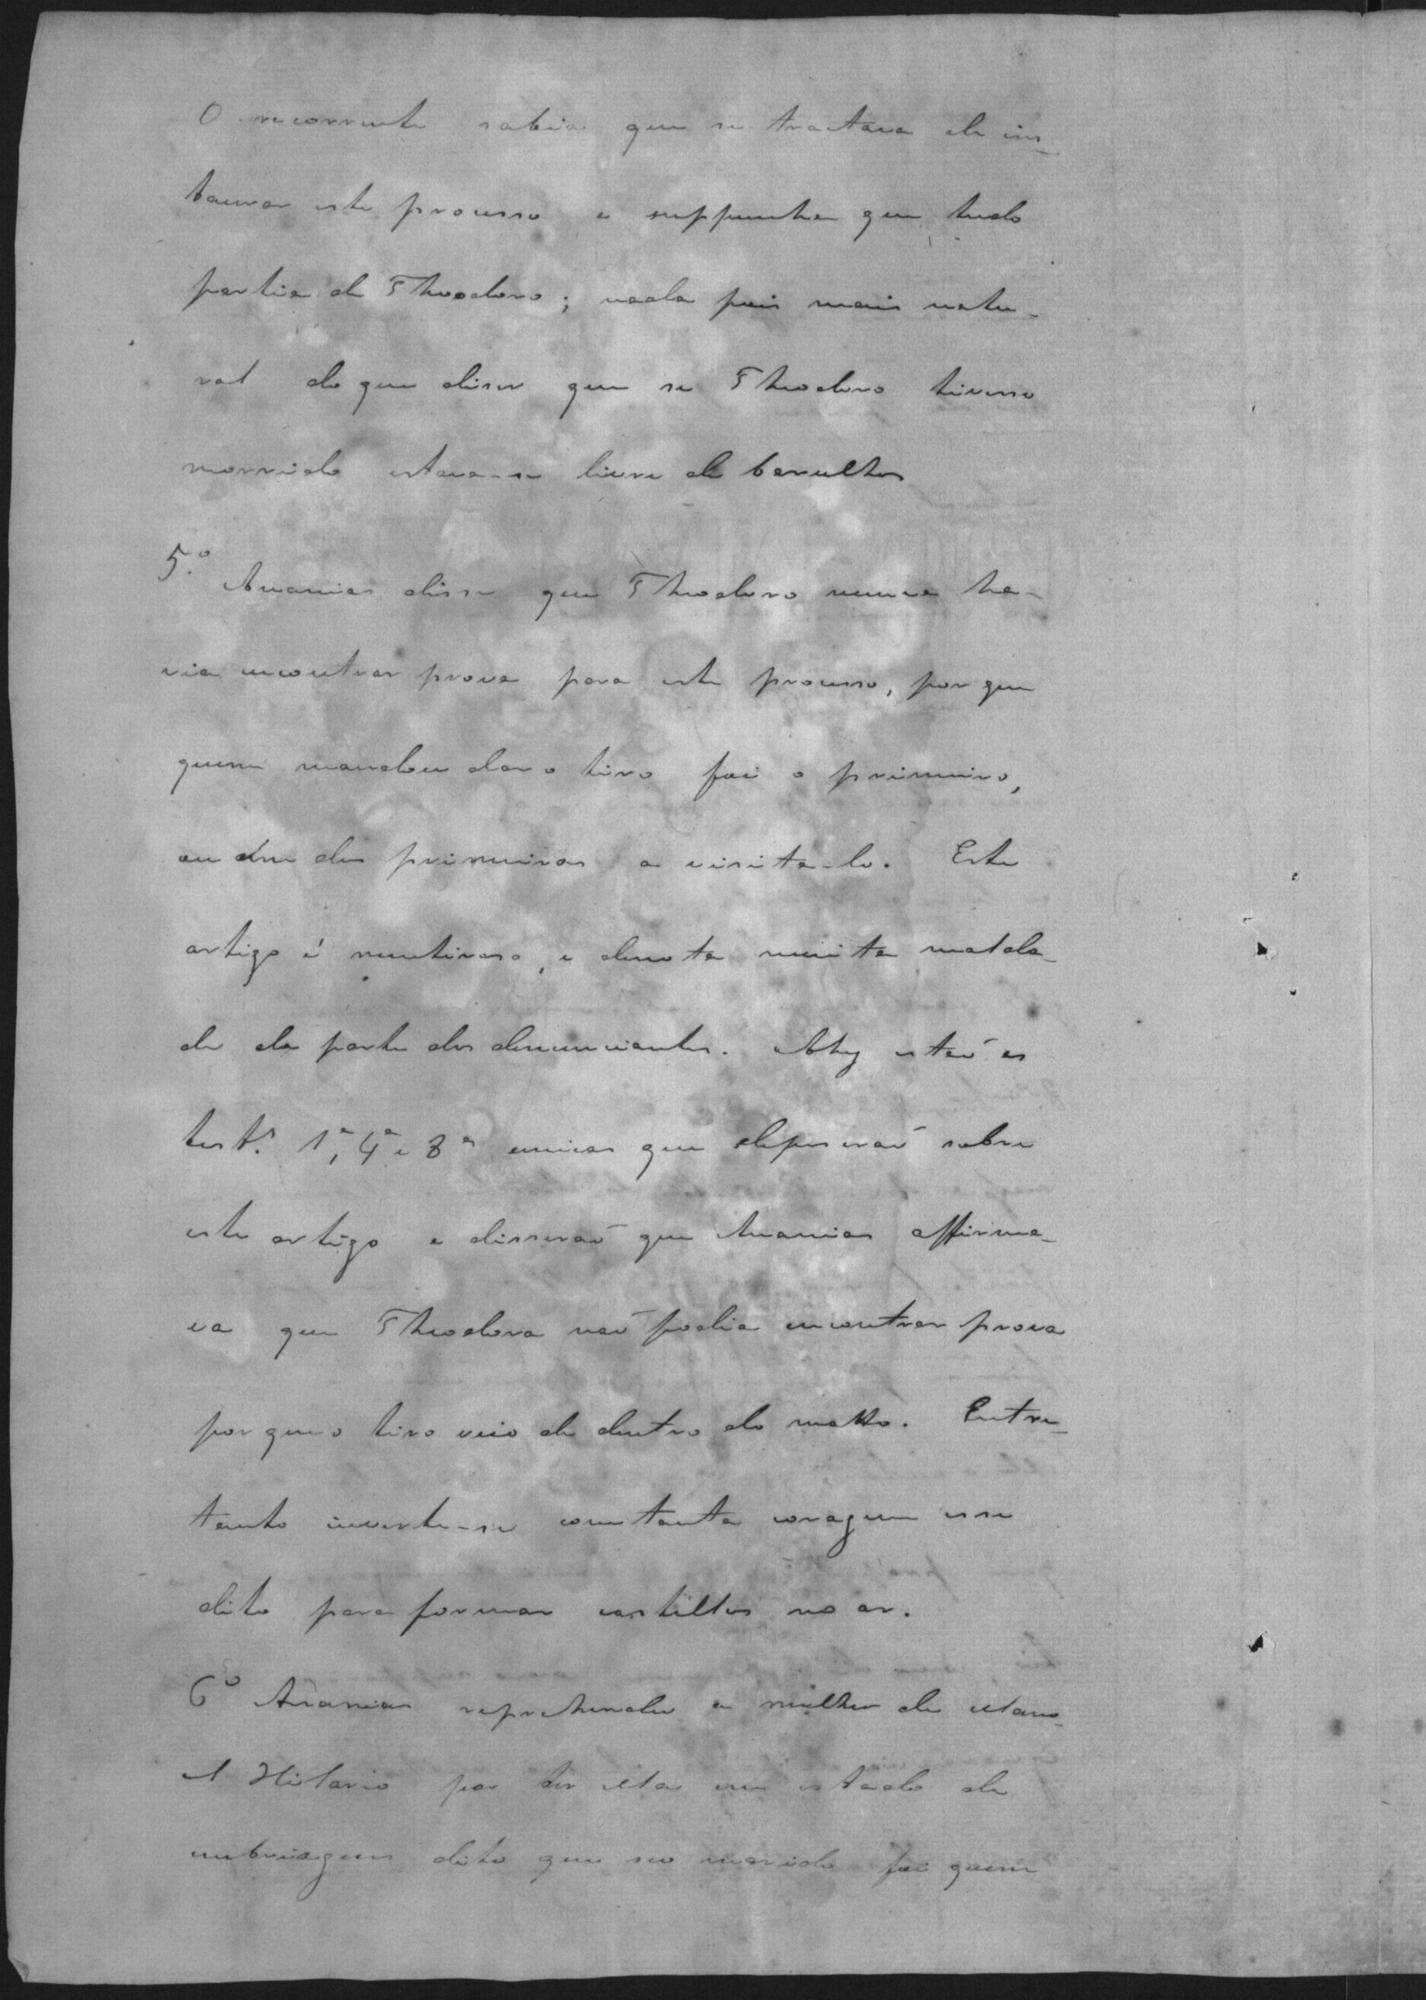 O recorrente sabia que se tractava de ins-
taurar este processo e suppunha que tudo
partia de Theodoro; nada pois mais natu-
ral do que diser que se Theodoro tivesse
morrido estava-se livre de barulhos
5.º Ananias disse que Theodoro nunca ha-
via encontrar prova para este processo, por que
quem mandou dar o tiro foi o primeiro,
ou um dos primeiros a visita-lo. Este
artigo é mentiroso, e denota muita malda-
de da parte dos denunciantes. Ahy estaõ as
test.ˢ 1ª, 4ª e 8ª unicas que depuseraõ sobre
este artigo e disseraõ que Ananias affirma-
va que Theodoro naõ podia encontrar prova
por que o tiro veio de dentro do matto. Entre-
tanto inverte-se com tanta coragem esse
dito para formar castellos no ar.
6º Ananias reprehendeu a mulher de Mano-
el Hilario por ter ella em estado de
embriaguez dito que seo marido foi quem